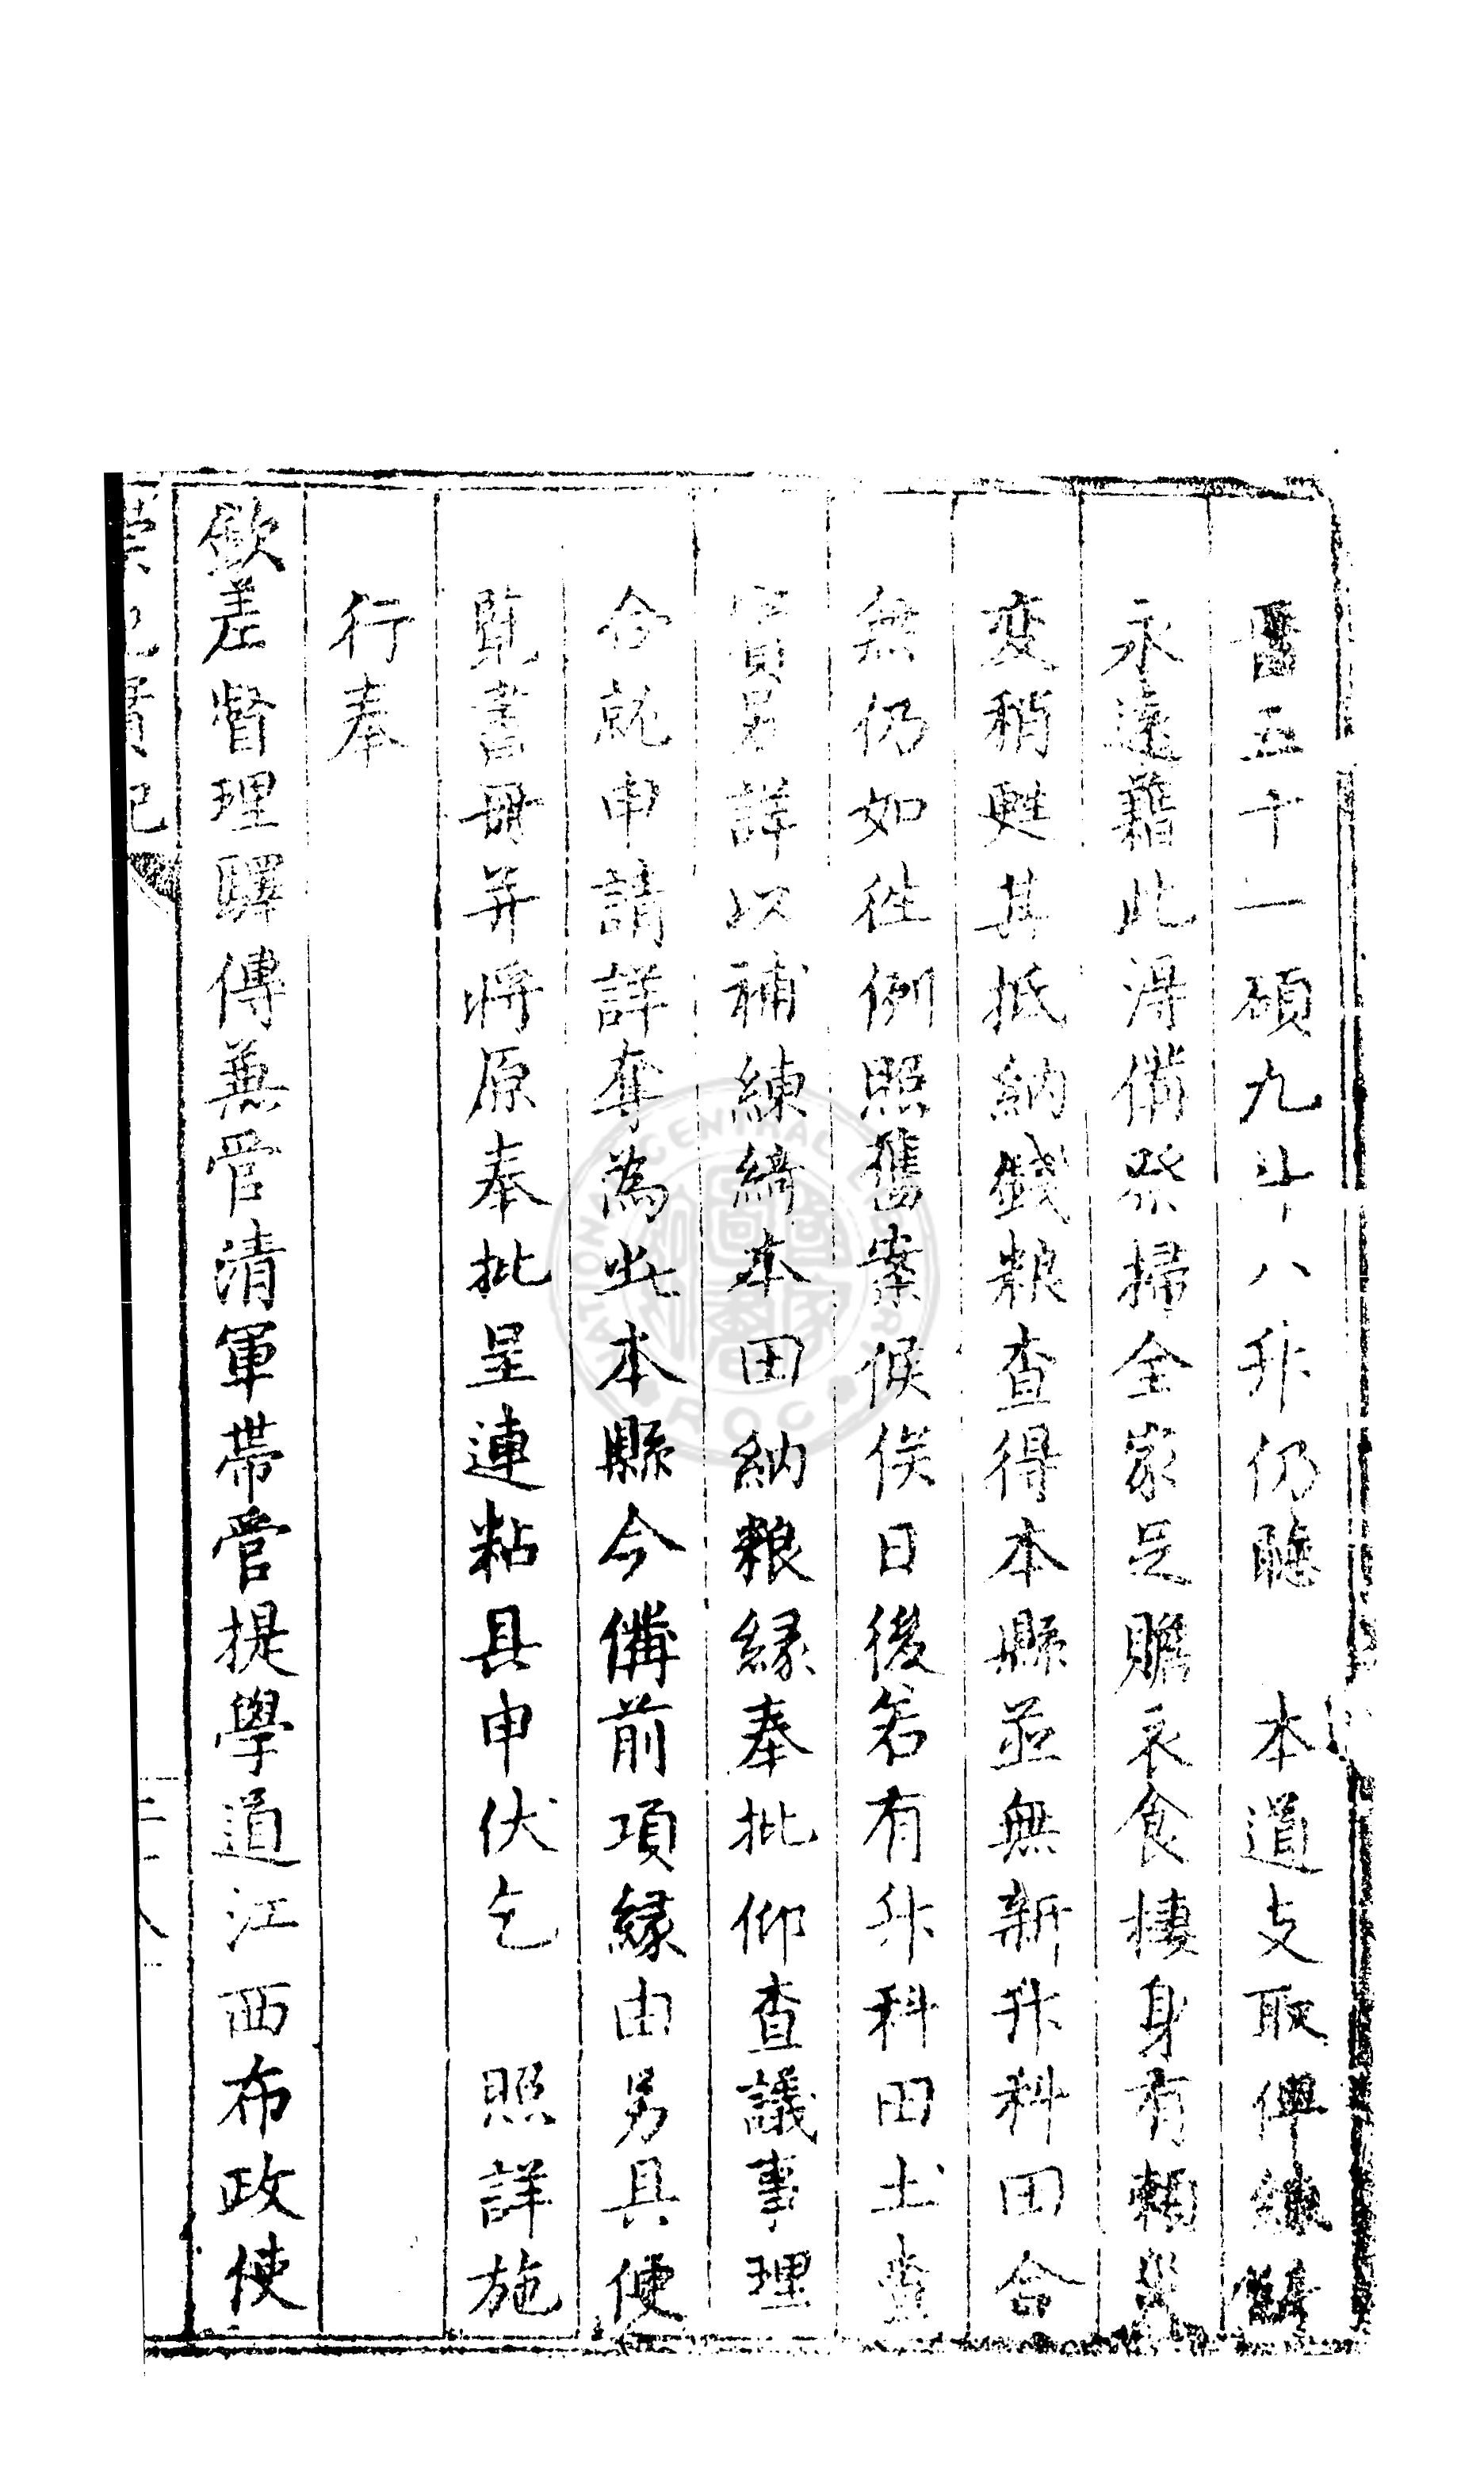 五十一碩九斗八升仍聽　本道支取俾練
永遠藉此得備祭掃全家足贍衣食棲身有賴
変稍甦其抵納錢粮查得本縣並無新升科田合
無仍如徃例照舊案候俟日後若有升科田土查
實另詳以補練綺本田納粮緣奉批仰查議事理
合就申請詳奪為此本縣今備前項緣由另具便
覧書冊并將原奉批呈連粘具申伏乞　照詳施
行奉
欽差督理驛傳兼管清軍帶管提學道江西布政使
崇祀實紀
二十八